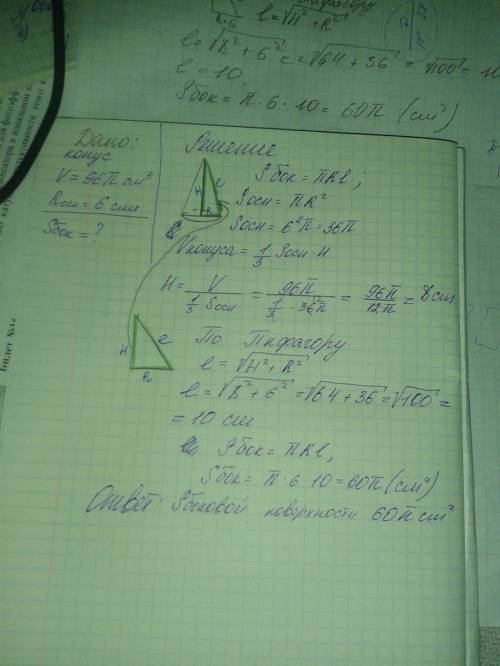 Пифагору
R=6 l = √H² + R²
l = √8² + 6² = √64 + 36 = √100 = 10
l = 10
Sбок = π · 6 · 10 = 60π (см²)
Дано:
конус
V = 96π см³
Rосн = 6 см
Sбок = ?
Решение
H l
R
Sбок = πRl;
Sосн = πR²
Sосн = 6²π = 36π
Vконуса = 1/3 Sосн · H
H = V / (1/3 Sосн) = 96π / (1/3 · 36π) = 96π / 12π = 8 см
H l
R
По Пифагору
l = √H² + R²
l = √8² + 6² = √64 + 36 = √100 =
= 10 см
Sбок = πRl,
Sбок = π · 6 · 10 = 60π (см²)
Ответ: Sбоковой поверхности 60π см²
Билет №12